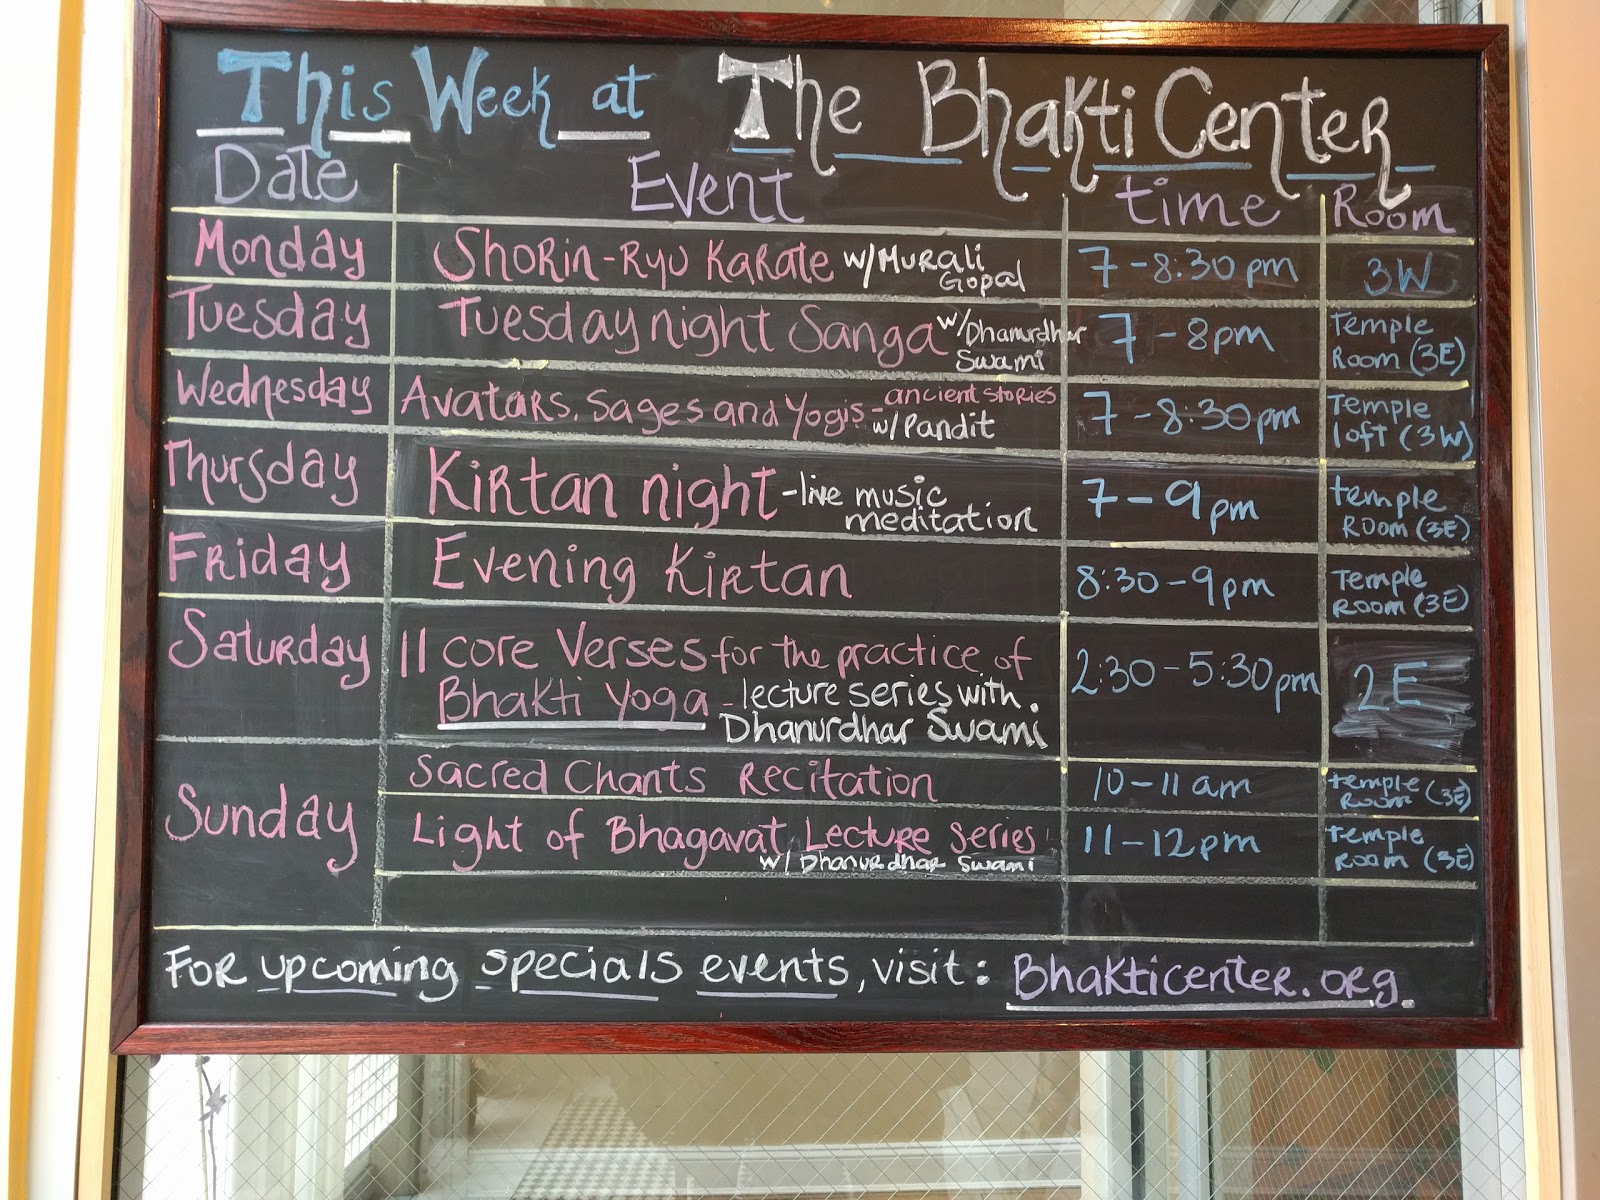 This Week at The Bhakti Center
Date Event time Room
Monday Shorin-Ryu Karate w/Murali Gopal 7-8:30pm 3W
Tuesday Tuesday night Sanga w/Dhanurdhar Swami 7-8pm Temple Room (3E)
Wednesday Avatars, Sages and Yogis - ancient stories w/Pandit 7-8:30pm Temple loft (3W)
Thursday Kirtan night - live music meditation 7-9pm temple Room (3E)
Friday Evening Kirtan 8:30-9pm Temple Room (3E)
Saturday 11 core Verses for the practice of Bhakti Yoga - lecture series with Dhanurdhar Swami 2:30-5:30pm 2E
Sunday Sacred Chants Recitation 10-11am temple Room (3E)
Light of Bhagavat Lecture Series w/ Dhanurdhar Swami 11-12pm temple Room (3E)
For upcoming specials events, visit: Bhakticenter.org